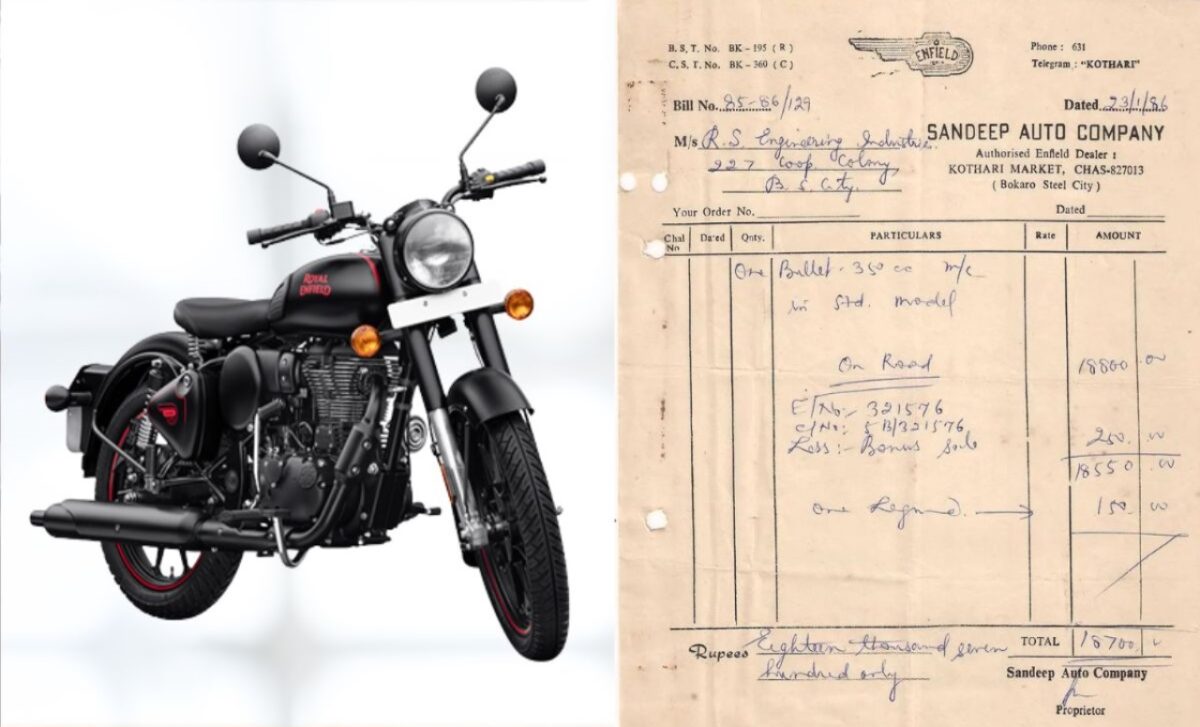 ROYAL
ENFIELD
B. S. T. No. BK - 195 ( R )
C. S. T. No. BK - 360 ( C )
ENFIELD
Phone : 631
Telegram : "KOTHARI"
Bill No. 85-86/129
Dated 23/1/86
M/s R. S. Engineering Industries
227 Coop. Colony
B. S. City.
SANDEEP AUTO COMPANY
Authorised Enfield Dealer :
KOTHARI MARKET, CHAS-827013
( Bokaro Steel City )
Your Order No.
Dated
Chal No Dated Qnty. PARTICULARS Rate AMOUNT
One Bullet - 350 cc m/c
in Std. model
On Road 18800.00
E/No:- 321576
C/No:- 5B/321576
Less:- Bonus 250.00
18550.00
One → 150.00
Rupees Eighteen thousand seven
hundred only
TOTAL 18700
Sandeep Auto Company
Proprietor